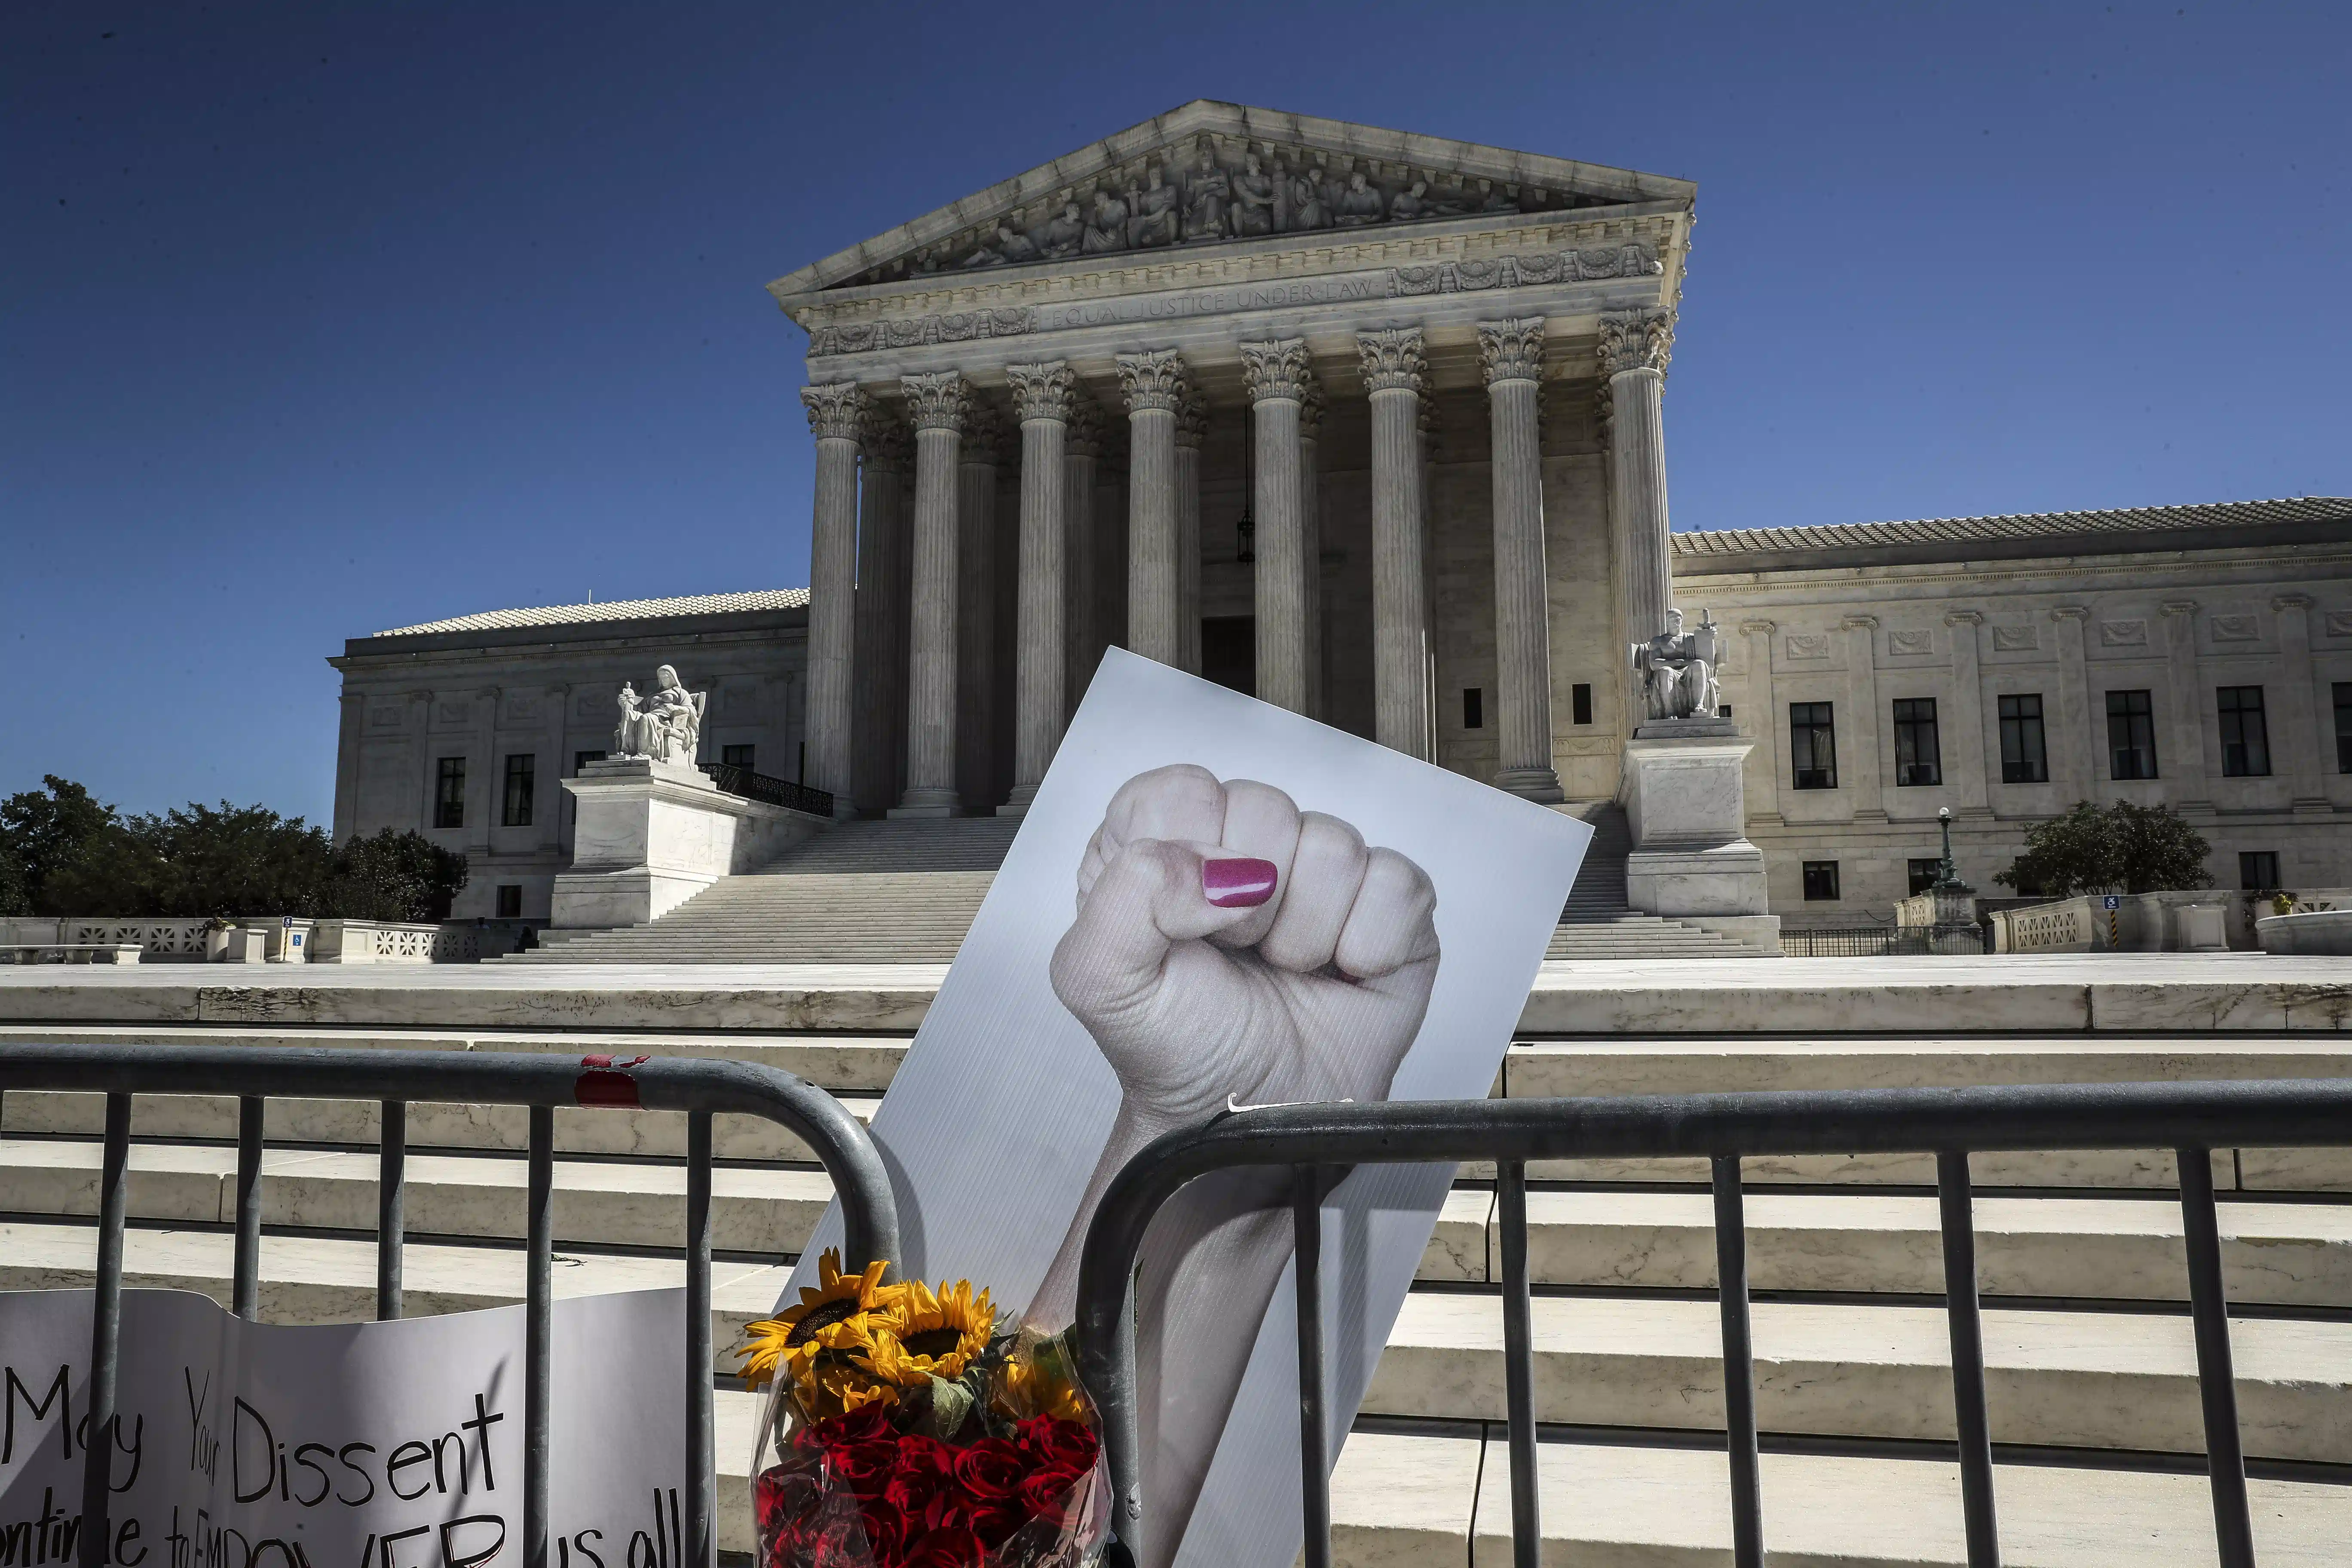 EQUAL JUSTICE UNDER LAW
May Your Dissent
ontinue to EMPOWER us all